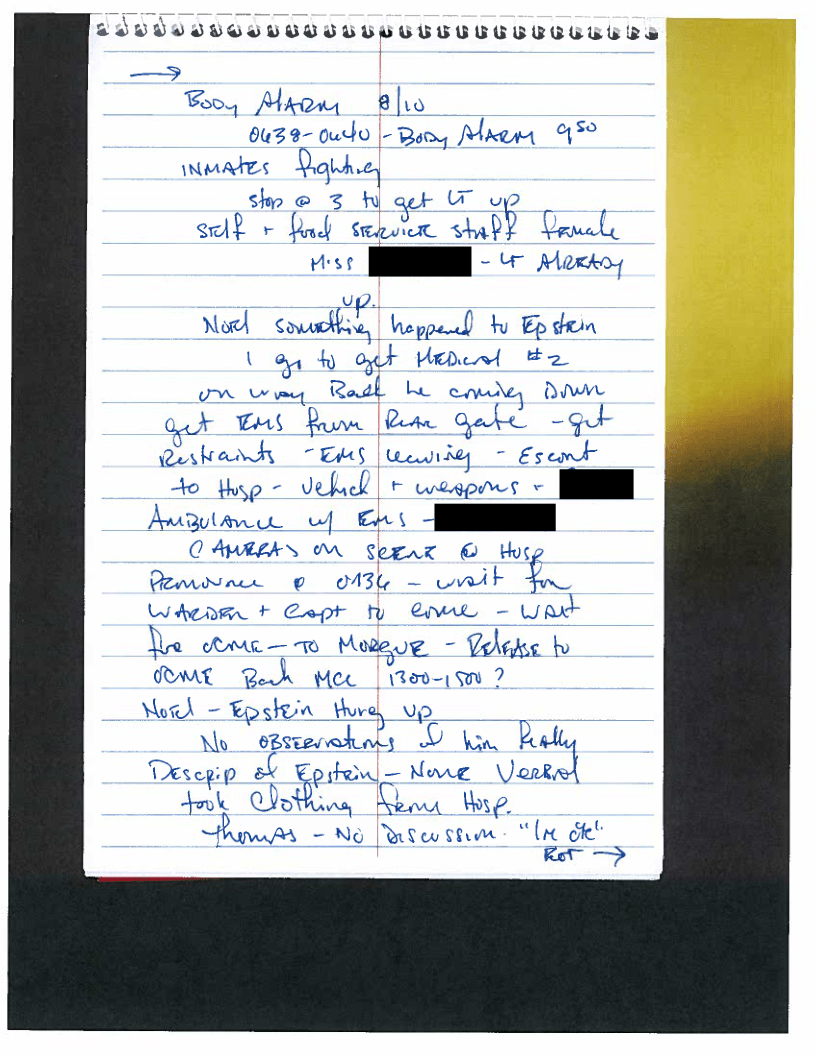 →
Body Alarm 8/10
0638-0640 - Body Alarm 9so
Inmates fighting
stop @ 3 to get LT up
Self + food service staff female
Miss - LT Already
up.
Noel something happened to Epstein
I go to get Medical #2
on way Back he coming Down
get EMS from Rear gate - get
Restraints - EMS - Escort
to Hosp - Vehicl + weapons +
Ambulance w/ EMS -
Cameras on scene @ Hosp
Pronounce @ - wait for
Warden + Capt to come - Wait
for OCME - to Morgue - Release to
OCME Back MCC 1300-1500?
Noel - Epstein Hung up
No observations of him Really
Descrip of Epstein - None Verbal
took Clothing from Hosp.
Thomas - No Discussion. "I'm ok".
→